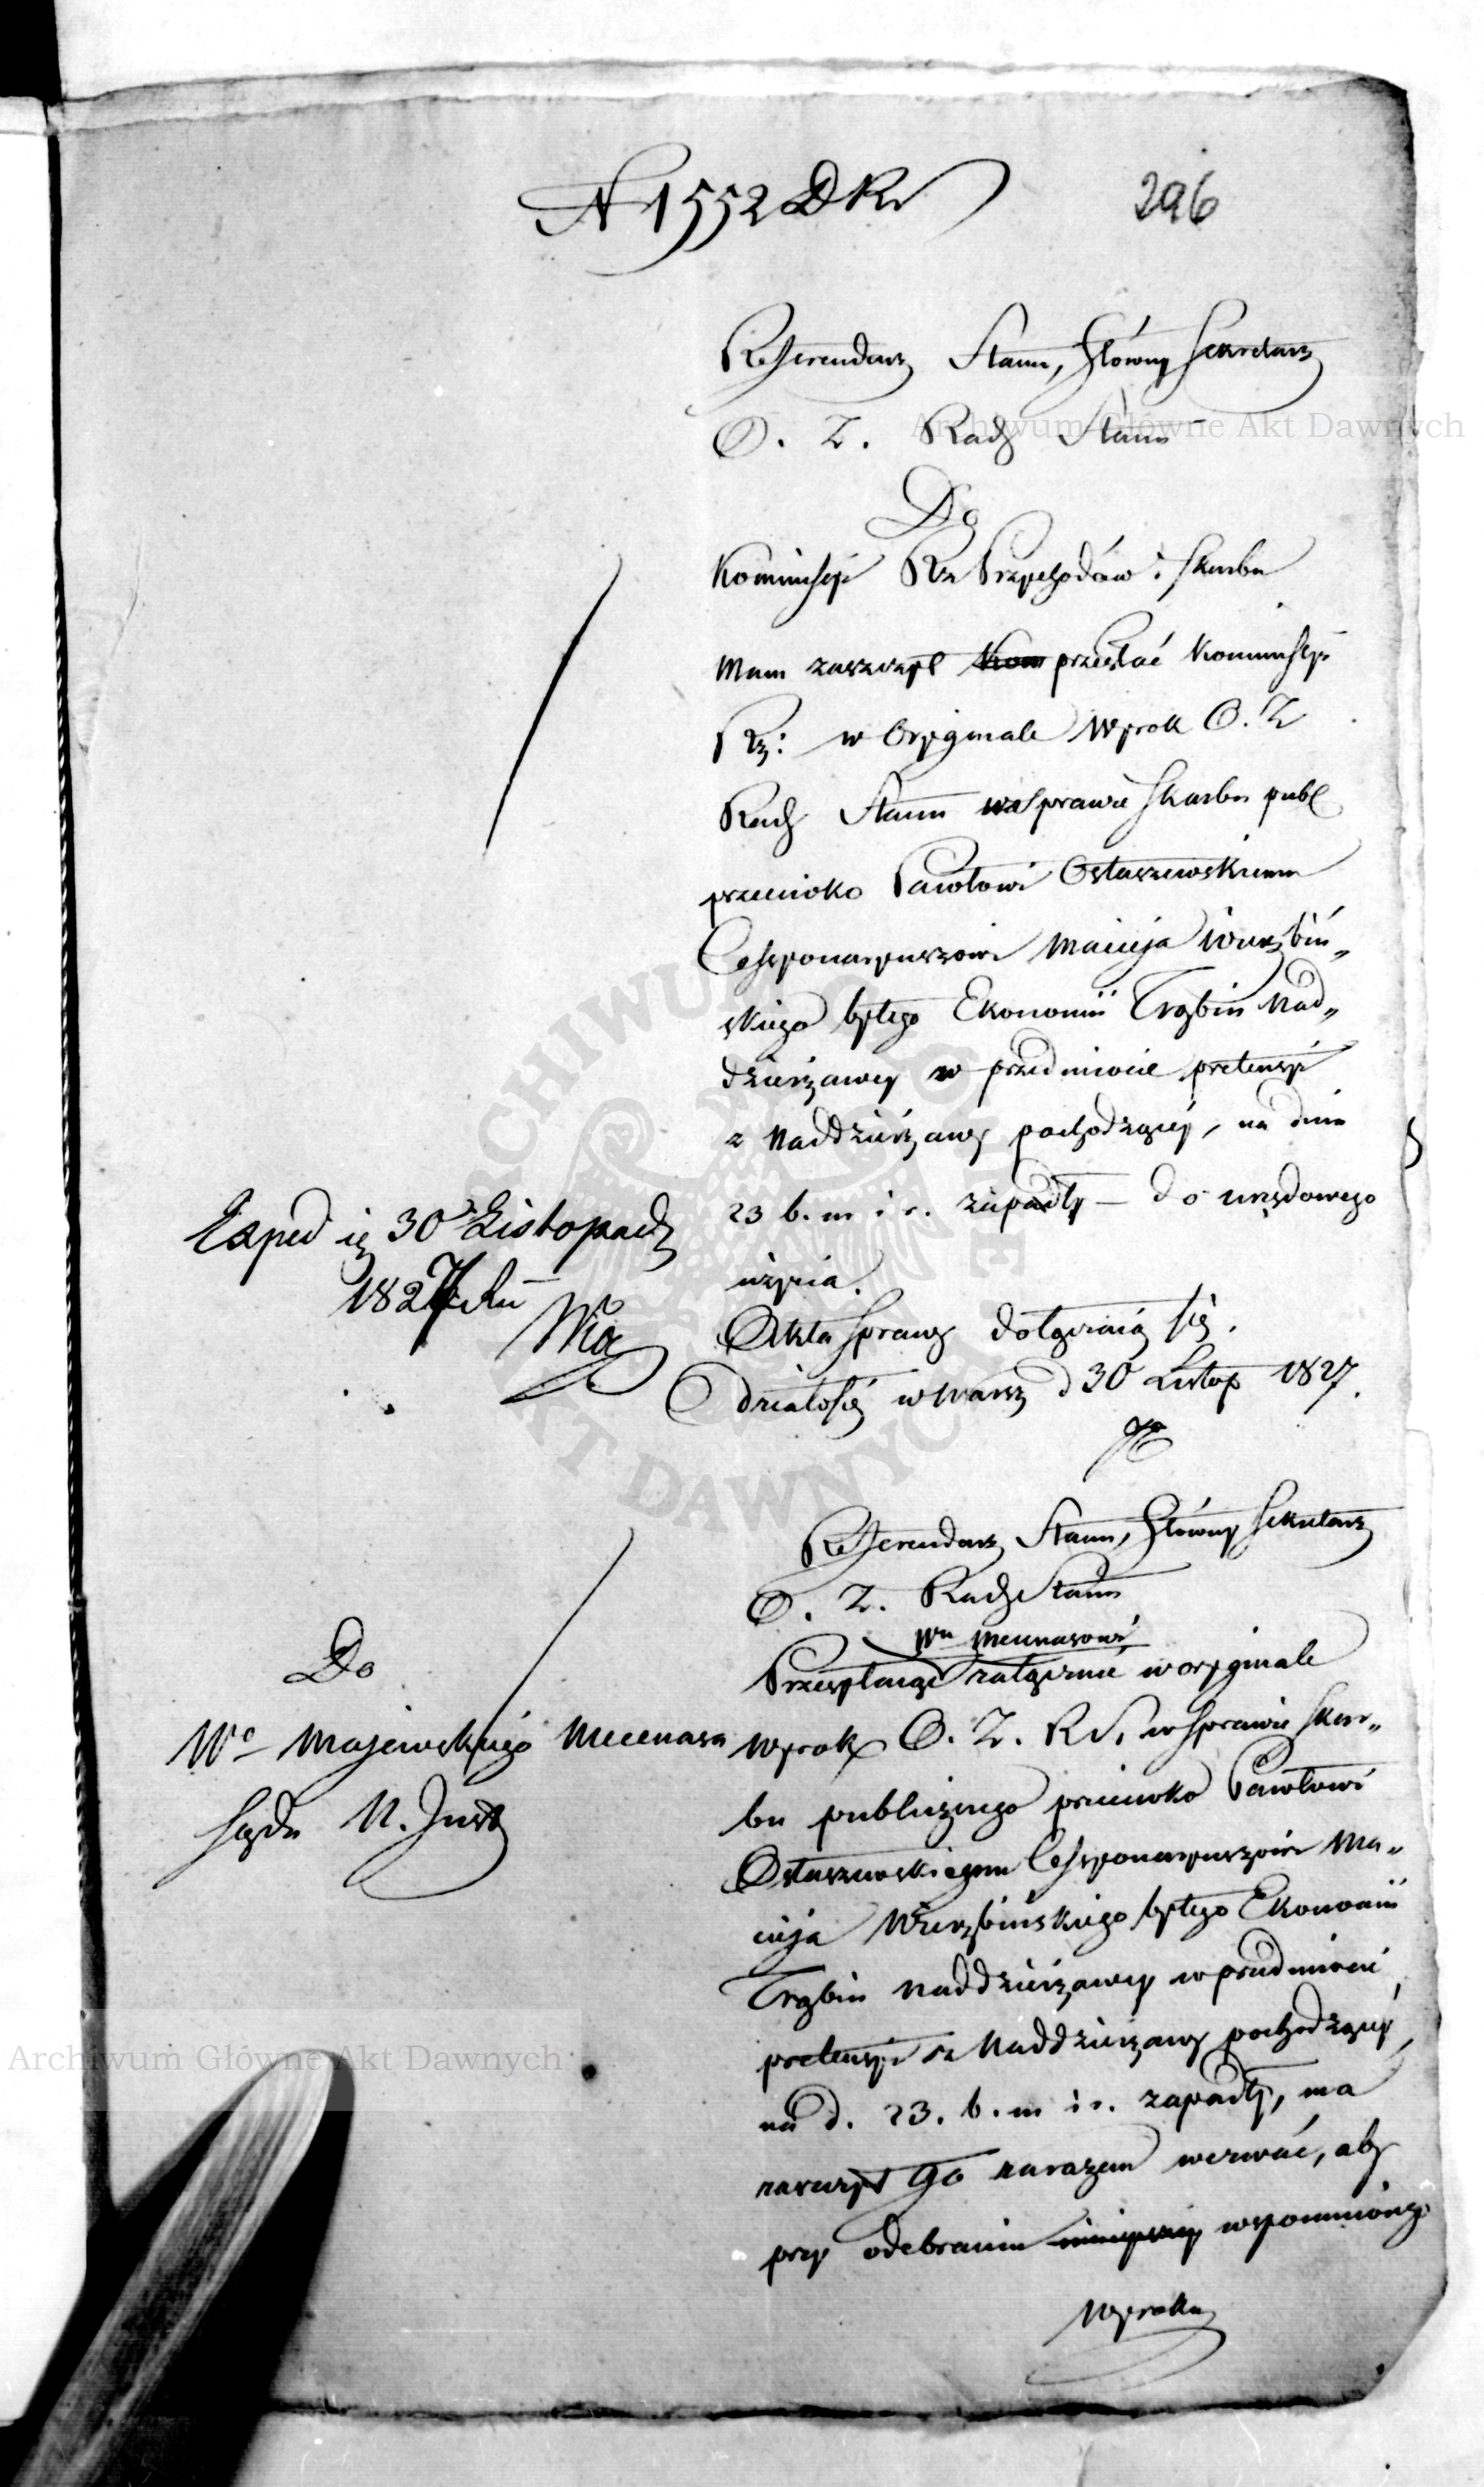 N 1552 DR
296
Referendarz Stanu, Główny Sekretarz
O. Z. Rady Stanu
Do
Kommissyi Rz Przychodów i Skarbu
Mam zaszczyt Kom przesłać Kommissyi
Rz: w Oryginale Wyrok O. Z
Rady Stanu w Sprawie Skarbu publ
przeciwko Pawłowi Ostaszewskiemu
Cessyonaryuszowi Macieja Wierzbiń„
skiego byłego Ekonomii Trąbin Nad„
dzierżawcy w przedmiocie pretensyi
z Naddzierżawy pochodzącej, na dniu
23 b. m i r. zapadły – do urzędowego
użycia.
Akta Sprawy dołączaią się.
Działo się w Warsz d 30 Listop 1827.
Exped ię 30 Listopada
1827 Ru
Referendarz Stanu, Główny Sekretarz
O. Z. Rady Stanu
Wu Mecenasowi
Przesyłaiąc załącznie w oryginale
Do
Wo Majewskiego Mecenasa
Sądu N. Inst
Wyrok O. Z. R S. w Sprawie Skar„
bu publicznego przeciwko Pawłowi
Ostaszewskiemu Cessyonaryuszowi Ma„
cieja Wierzbińskiego byłego Ekonomii
Trąbin Naddzierżawcy w przedmiocie
pretensyi z Naddzierżawy pochodzącej
na d. 23. b. m i r. zapadły, ma
zaszczyt Go zarazem wezwać, aby
przy odebraniu niniejszey wspomnionego
Wyroku
Archiwum Główne Akt Dawnych
Archiwum Główne Akt Dawnych